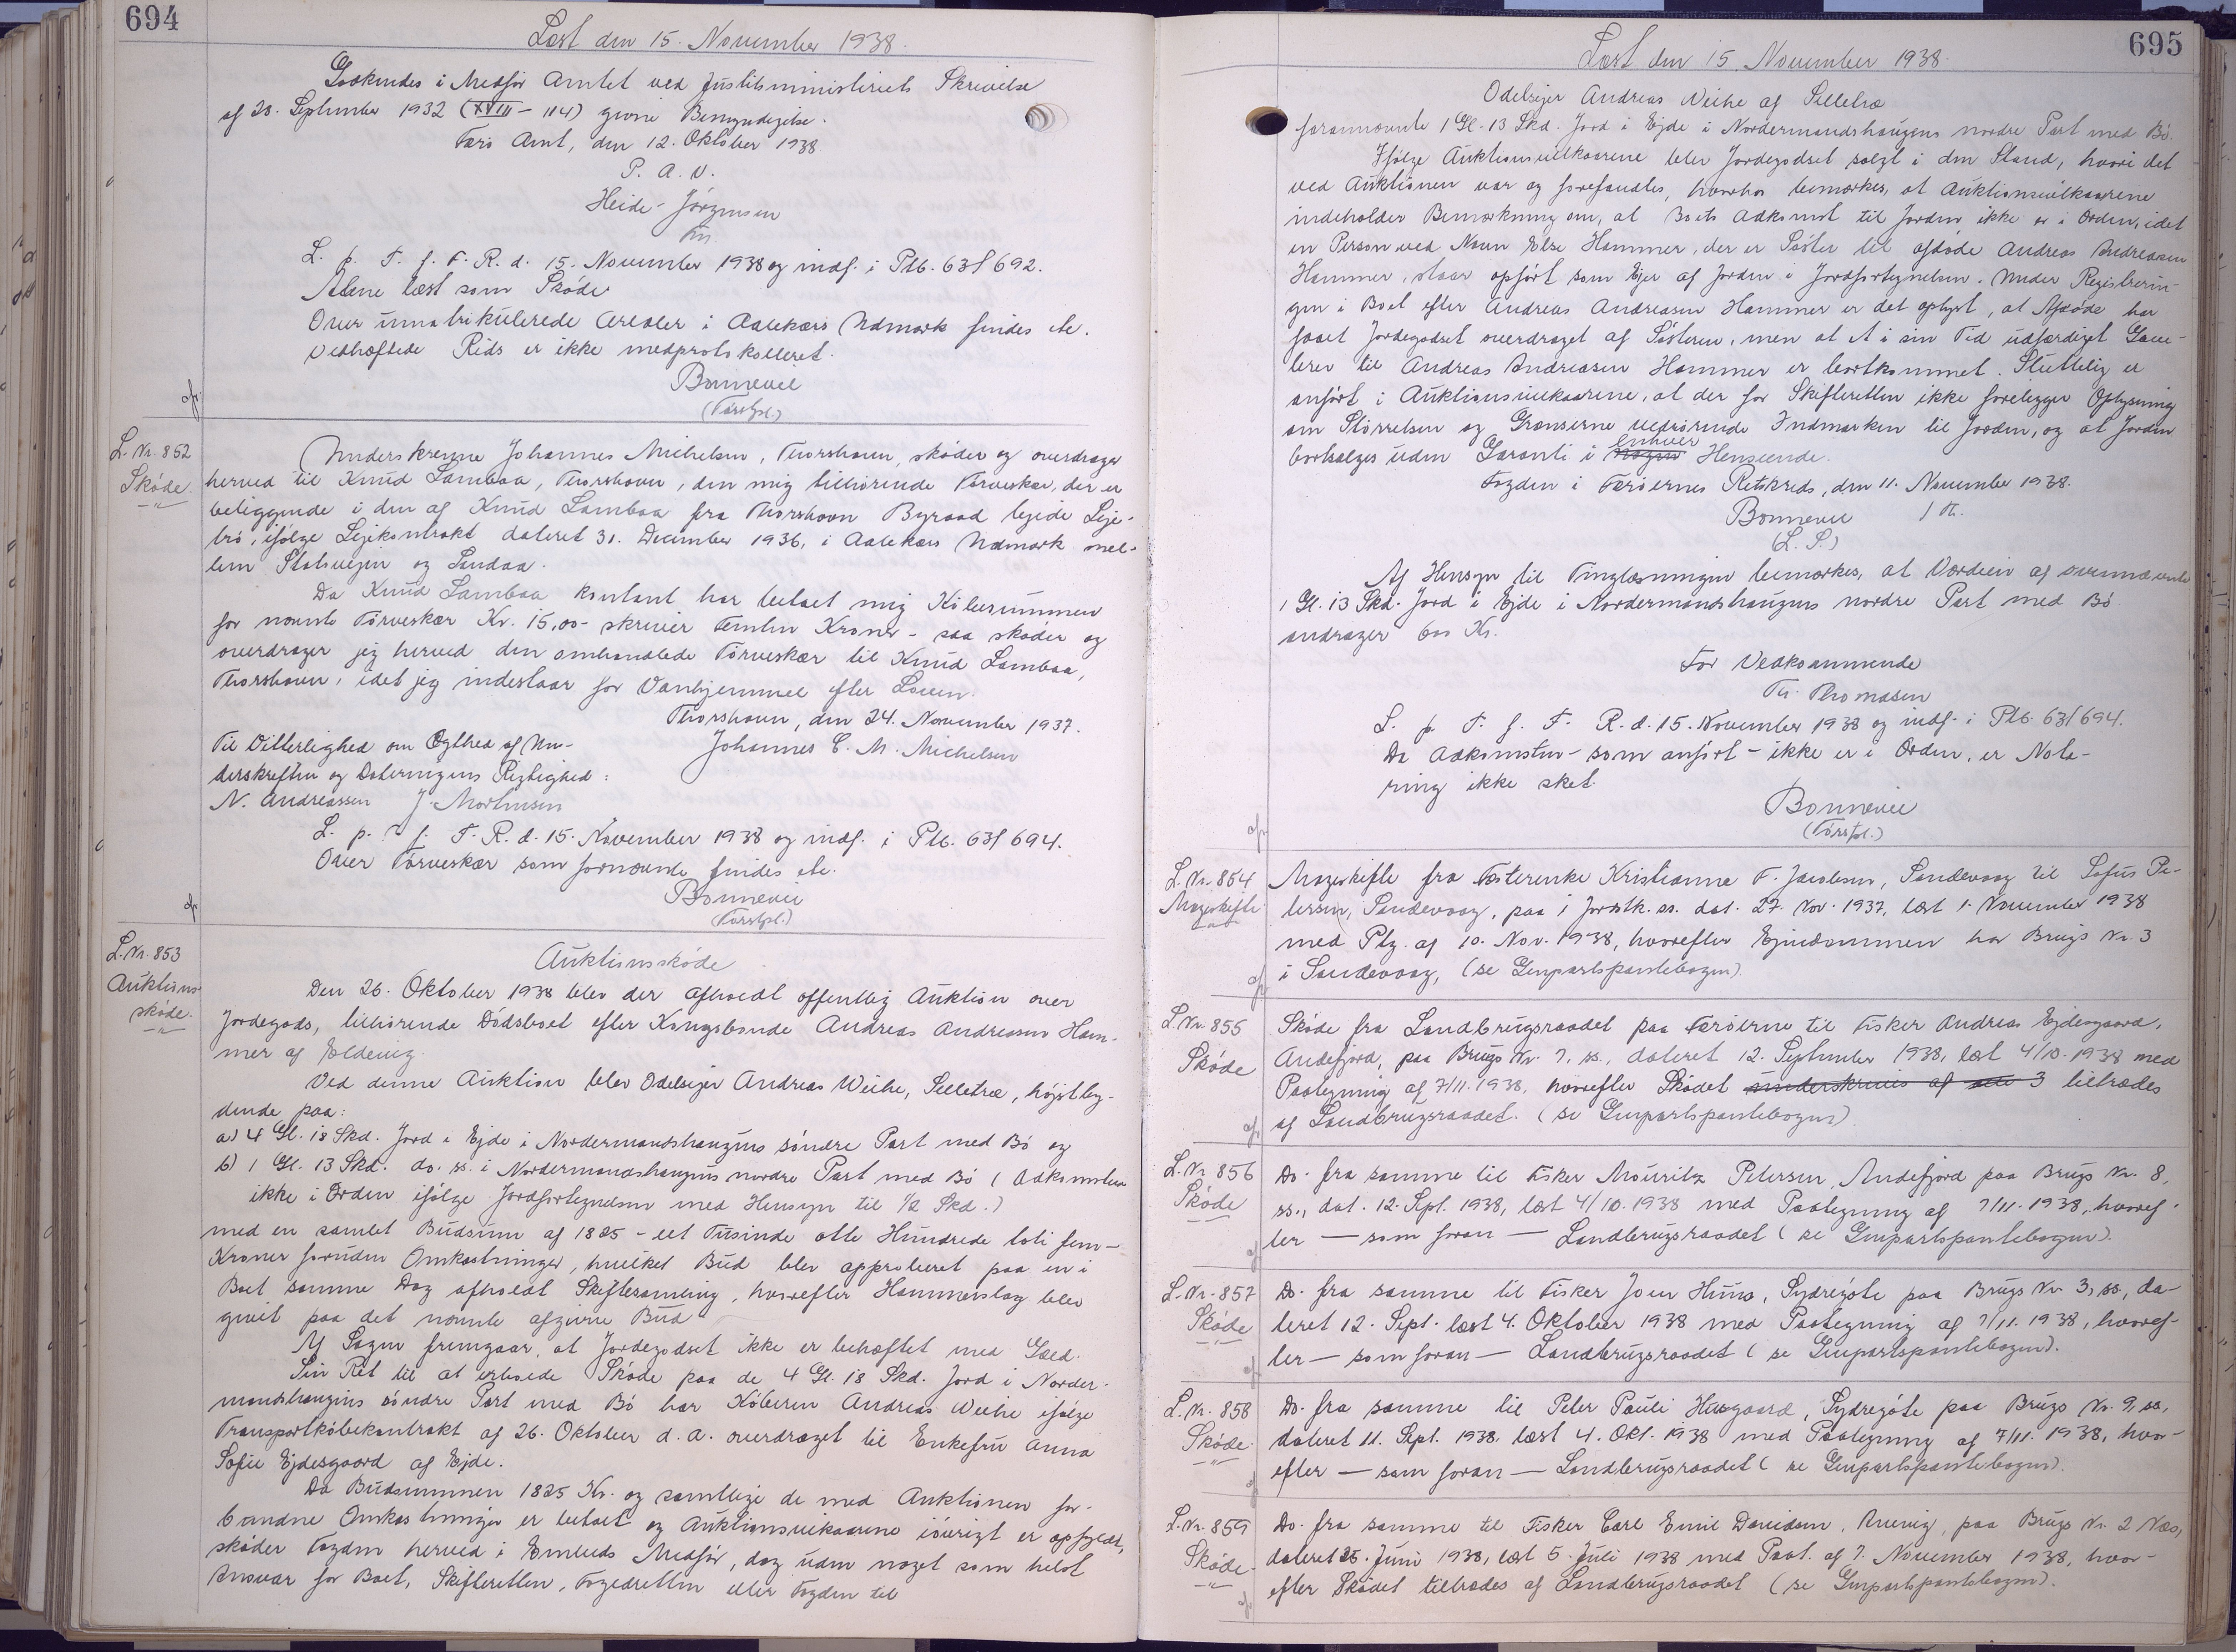 694
Læst den 15. November 1938.
Godkendes i Medfør Amtet ved Justitsministeriets Skrivelse
af 28. September 1932 (XVIII-114) givne Bemyndigelse.
Færø Amt, den 12. Oktober 1938
P. A. V.
Heide-Jörgensen
fm.
L. p. T. f. F. R. d. 15. November 1938 og indf. i Ptb. 63f 692.
Alene læst som Skøde
Over umatrikulerede Arealer i Aalekærs Udmark findes ete.
Vedhæftede Rids er ikke medprotokolleret.
Bonnevie
(Færøspl.)
L. Nr. 852
Skøde.
Underskrevne Johannes Michelsen, Thorshavn, skøder og overdrager
herved til Knud Lambaa, Thorshavn, den mig tilhörende Törveskær, der er
beliggende i den af Knud Lambaa fra Thorshavn Byraad lejede Leje-
trö, ifölge Lejekontrakt dateret 31. December 1936, i Aalekærs Udmark mel-
lem Statsvejen og Sandaa.
Da Knud Lambaa kontant har betalt mig Köbesummen
for nævnte Törveskær Kr. 15,00 - skriver Femten Kroner - saa skøder og
overdrager jeg herved den omhandlede Törveskær til Knud Lambaa,
Thorshavn, idet jeg indestaar for Vanhjemmel efter Loven.
Thorshavn, den 24. November 1937.
Til Vitterlighed om Ægthed af Un-
Johannes C. M. Michelsen
derskriften og Dateringens Rigtighed:
N. Andreassen J. Mortensen
L. p. T. f. F. R. d. 15. November 1938 og indf. i Ptb. 63f 694.
Over Törveskær som fornævnte findes ete.
Bonnevie
(Færøspl.)
L. Nr. 853
Auktions-
skøde.
Auktionsskøde
Den 26. Oktober 1938 blev der afholdt offentlig Auktion over
Jordegods, tilhörende Dödsboet efter Kongsbonde Andreas Andreasen Ham-
mer af Eldevig.
Ved denne Auktion blev Odelsejer Andreas Weihe, Selletræ, höjstby-
dende paa:
a) 4 Gl. 18 Skd. Jord i Ejde i Nordermandshaugens söndre Part med Bö og
b) 1 Gl. 13 Skd. do. ss. i Nordermandshaugens nordre Part med Bö (Adkomsten
ikke i Orden ifölge Jordfortegnelsen med Hensyn til 1/2 Skd.)
med en samlet Budsum af 1825 - eet Tusinde otte Hundrede toti fem -
Kroner foruden Omkostninger, hvilket Bud blev approberet paa en i
Boet samme Dag afholdt Skiftesamling, hvorefter Hammerslag blev
givet paa det nævnte afgivne Bud
Af Sagen fremgaar, at Jordegodset ikke er behæftet med Gæld.
Sin Ret til at erholde Skøde paa de 4 Gl. 18 Skd. Jord i Norder-
mandshaugens söndre Part med Bö har Köberen Andreas Weihe ifölge
Transportköbekontrakt af 26. Oktober d. a. overdraget til Enkefru Anna
Sofie Ejdesgaard af Ejde.
Da Budsummen 1825 Kr. og samtlige de med Auktionen for-
bundne Omkostninger er betalt og Auktionsvilkaarene iövrigt er opfyldt,
skøder Fogden herved i Embeds Medfør, dog uden noget som helst
Ansvar for Boet, Skifteretten, Fogedretten eller Fogden til
695
Læst den 15. November 1938.
Odelsejer Andreas Weihe af Selletræ
forannævnte 1 Gl. 13 Skd. Jord i Ejde i Nordermandshaugens nordre Part med Bö.
Ifölge Auktionsvilkaarene blev Jordegodset solgt i den Stand, hvori det
ved Auktionen var og forefandtes, hvorhos bemærkes, at Auktionsvilkaarene
indeholder Bemærkning om, at Boets Adkomst til Jorden ikke er i Orden, idet
en Person ved Navn Else Hammer, der er Söster til afdöde Andreas Andreasen
Hammer, staar opfört som Ejer af Jorden i Jordfortegnelsen. Under Registrerin-
gen i Boet efter Andreas Andreasen Hammer er det oplyst, at Afdöde har
faaet Jordegodset overdraget af Sösteren, men at et i sin Tid udfærdiget Gave-
brev til Andreas Andreasen Hammer er bortkommet. Sluttelig er
anfört i Auktionsvilkaarene, at der for Skifteretten ikke foreligger Oplysning
om Störrelsen og Grænserne vedrörende Indmarken til Jorden, og at Jorden
bortsælges uden Garanti i nogen enhver Henseende.
Fogden i Færöernes Retskreds, den 11. November 1938.
Bonnevie / Th.
(L. S.)
Af Hensyn til Tinglæsningen bemærkes, at Værdien af ovennævnte
1 Gl. 13 Skd. Jord i Ejde i Nordermandshaugens nordre Part med Bö
andrager 600 Kr.
For Vedkommende
Th. Thomasen
L. p. T. f. F. R. d. 15. November 1938 og indf. i Ptb. 63f 694.
Da Adkomsten - som anfört - ikke er i Orden, er Note-
ring ikke sket.
Bonnevie
(Færøspl.)
L. Nr. 854
Mageskifte
Mageskifte fra Fæsterenke Kristianna F. Jacobsen, Sandevaag til Sofus Pe-
tersen, Sandevaag, paa 1 Jordstk. ss. dat. 27. Nov. 1937, læst 1. November 1938
med Ptg. af 10. Nov. 1938, hvorefter Ejendommen har Brugs Nr. 3
i Sandevaag, (se Genpartspantebogen).
L. Nr. 855
Skøde
Skøde fra Landbrugsraadet paa Færöerne til Fisker Andreas Ejdesgaard,
Andefjord, paa Brugs Nr. 7, ss., dateret 12. September 1938, læst 4/10. 1938 med
Paategning af 7/11. 1938, hvorefter Skødet underskrives af alle 3 tiltrædes
af Landbrugsraadet. (se Genpartspantebogen).
L. Nr. 856
Skøde
Do. fra samme til Fisker Mourits Petersen, Andefjord paa Brugs Nr. 8,
ss., dat. 12. Sept. 1938, læst 4/10. 1938 med Paategning af 7/11. 1938, hvoref-
ter — som foran — Landbrugsraadet (se Genpartspantebogen).
L. Nr. 857
Skøde
Do. fra samme til Fisker Joen Huus, Sydregöte paa Brugs Nr. 3, ss., da-
teret 12. Sept. læst 4. Oktober 1938 med Paategning af 7/11. 1938, hvoref-
ter — som foran — Landbrugsraadet (se Genpartspantebogen).
L. Nr. 858
Skøde.
Do. fra samme til Peter Pauli Husgaard, Sydregöte paa Brugs Nr. 9, ss,
dateret 11. Sept. 1938, læst 4. Okt. 1938 med Paategning af 7/11. 1938, hvor-
efter — som foran — Landbrugsraadet (se Genpartspantebogen).
L. Nr. 859
Skøde.
Do. fra samme til Fisker Carl Emil Davidsen, Runevig, paa Brugs Nr. 2 Næs,
dateret 25. Juni 1938, læst 5. Juli 1938 med Paat. af 7. November 1938, hvor-
efter Skødet tiltrædes af Landbrugsraadet (se Genpartspantebogen).